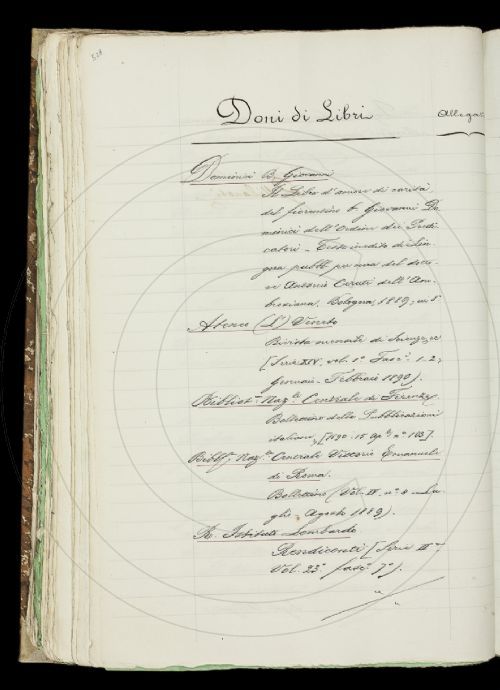 Doni di Libri
Allega
Dominici B. Giovanni
Il Libro d'amore di carità,
del fiorentino b. Giovanni Do
minici dell'Ordine dei Predi
catori - Testo inedito di Lin-
gua pubbl. per cura del dott.
Antonio Ceruti dell'Am-
brosiana. Bologna, 1889; in 8°
Ateneo (L') Veneto
Rivista mensile di Scienze, ec
[Serie XIV. vol. 1° Fasc. 1-2,
Gennaio - Febbraio 1890).
Bibliot. Naz.le Centrale di Firenze,
Bollettino delle Pubblicazioni
italiane, [1890. 15 Ap.le n° 103].
Bibl. Naz.le Centrale Vittorio Emanuele
di Roma.
Bollettino (Vol. IV. n° 4 - Lu-
glio - Agosto 1889).
R. Istituto Lombardo
Rendiconti [Serie II.
Vol. 23° fasc. 7°).